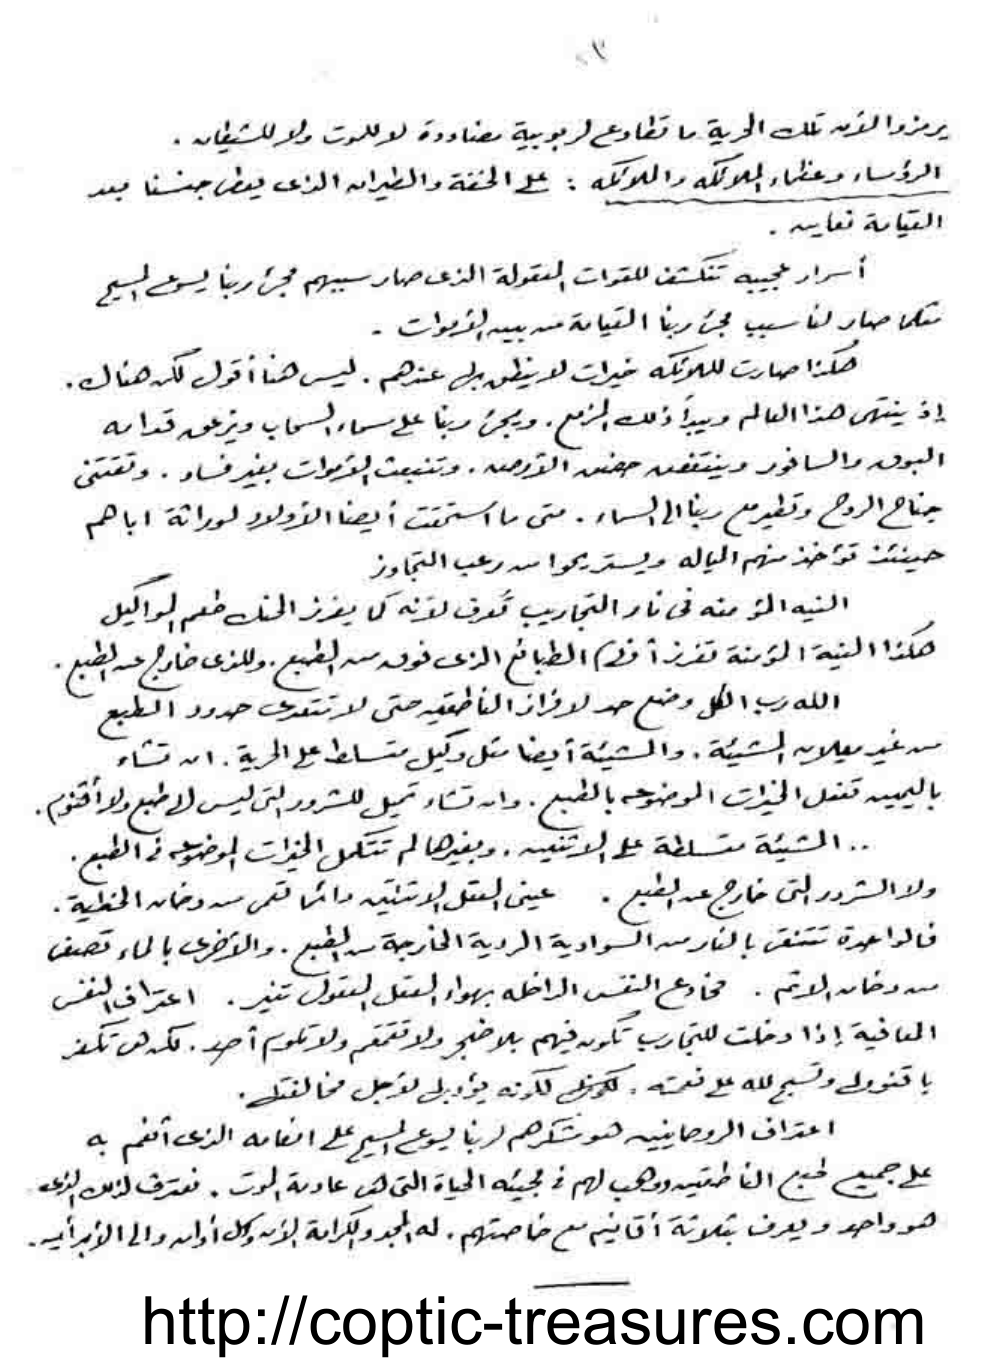 يرمزوا الآن تلك الحرية ما تطاوع لربوبية مضاددة لا للموت ولا للشيطان .
الرؤساء وعظماء الملائكه والملائكه : على الخفة والطيران الذى يعطى جنسنا بعد
القيامة نعاين .
أسرار عجيبه تنكشف للقوات المعقولة الذى صار سببهم مجئ ربنا يسوع المسيح
مثلما صار لنا سبب مجئ ربنا القيامة من بين الأموات .
هكذا صارت للملائكه خيرات لا ينطق بها عندهم . ليس هنا أقول لكن هناك .
إذ ينتهى هذا العالم ويبدأ ذلك المزمع . ويجئ ربنا على سماء السحاب ويزعق قدامه
البوق والسافور وينتقض حضن الأرض . وتنبعث الأموات بغير فساد . وتقتنى
جناح الروح وتطير مع ربنا الى السماء . متى ما استحقت أيضا الأولاد لوراثة اباهم
حينئذ تؤخذ منهم الياله ويستريحوا من رعب التجاوز
النيه المؤمنه فى نار التجاريب تُعرف لأنه كما يفرز الحنك طعم المواكيل
هكذا النية المؤمنة تفرز أفهام الطبائع الذى فوق من الطبع . وللذى خارج عن الطبع .
الله رب الكل وضع حد لافراز الناطقين حتى لا تتعدى حدود الطبع
من غير ميلان المشيئة . والمشيئة أيضا مثل وكيل متسلط على الحرية . ان تشاء
باليمين تفعل الخيرات الموضوعه بالطبع . وان تشاء تميل للشرور التى ليس لها طبع ولا أقنوم .
.. المشيئة متسلطة على الاثنين . وبغيرها لم تتكمل الخيرات الموضوعه فى الطبع .
ولا الشرور التى خارج عن الطبع . عينى العقل الاثنتين دائما تعمى من دخان الخطية .
فالواحدة تتنقى بالنار من السوادية الردية الخارجة من الطبع . والأخرى بالماء تصفى
من دخان الاثم . مخادع النفس الداخله بهواء العقل المعقول تنير . اعتراف النفس
المعافية إذا دخلت للتجارب تكون فيهم بلا ضجر ولا تقمقم ولا تلوم أحد . لكن هى تكفر
باقنومها وتسبح لله على نعمته . لكونه يؤدبها لأجل مخالفتها .
اعتراف الروحانيين هو شكرهم لربنا يسوع المسيح على انعامه الذى أنعم به
على جميع طبع الناطقين ووهب لهم فى مجيئه الحياة التى هى عادمة الموت . نعترف لذلك الذى
هو واحد ويعرف بثلاثة أقانيم مع خاصتهم . له المجد والكرامة الآن وكل أوان والى الأبد أمين .
http://coptic-treasures.com